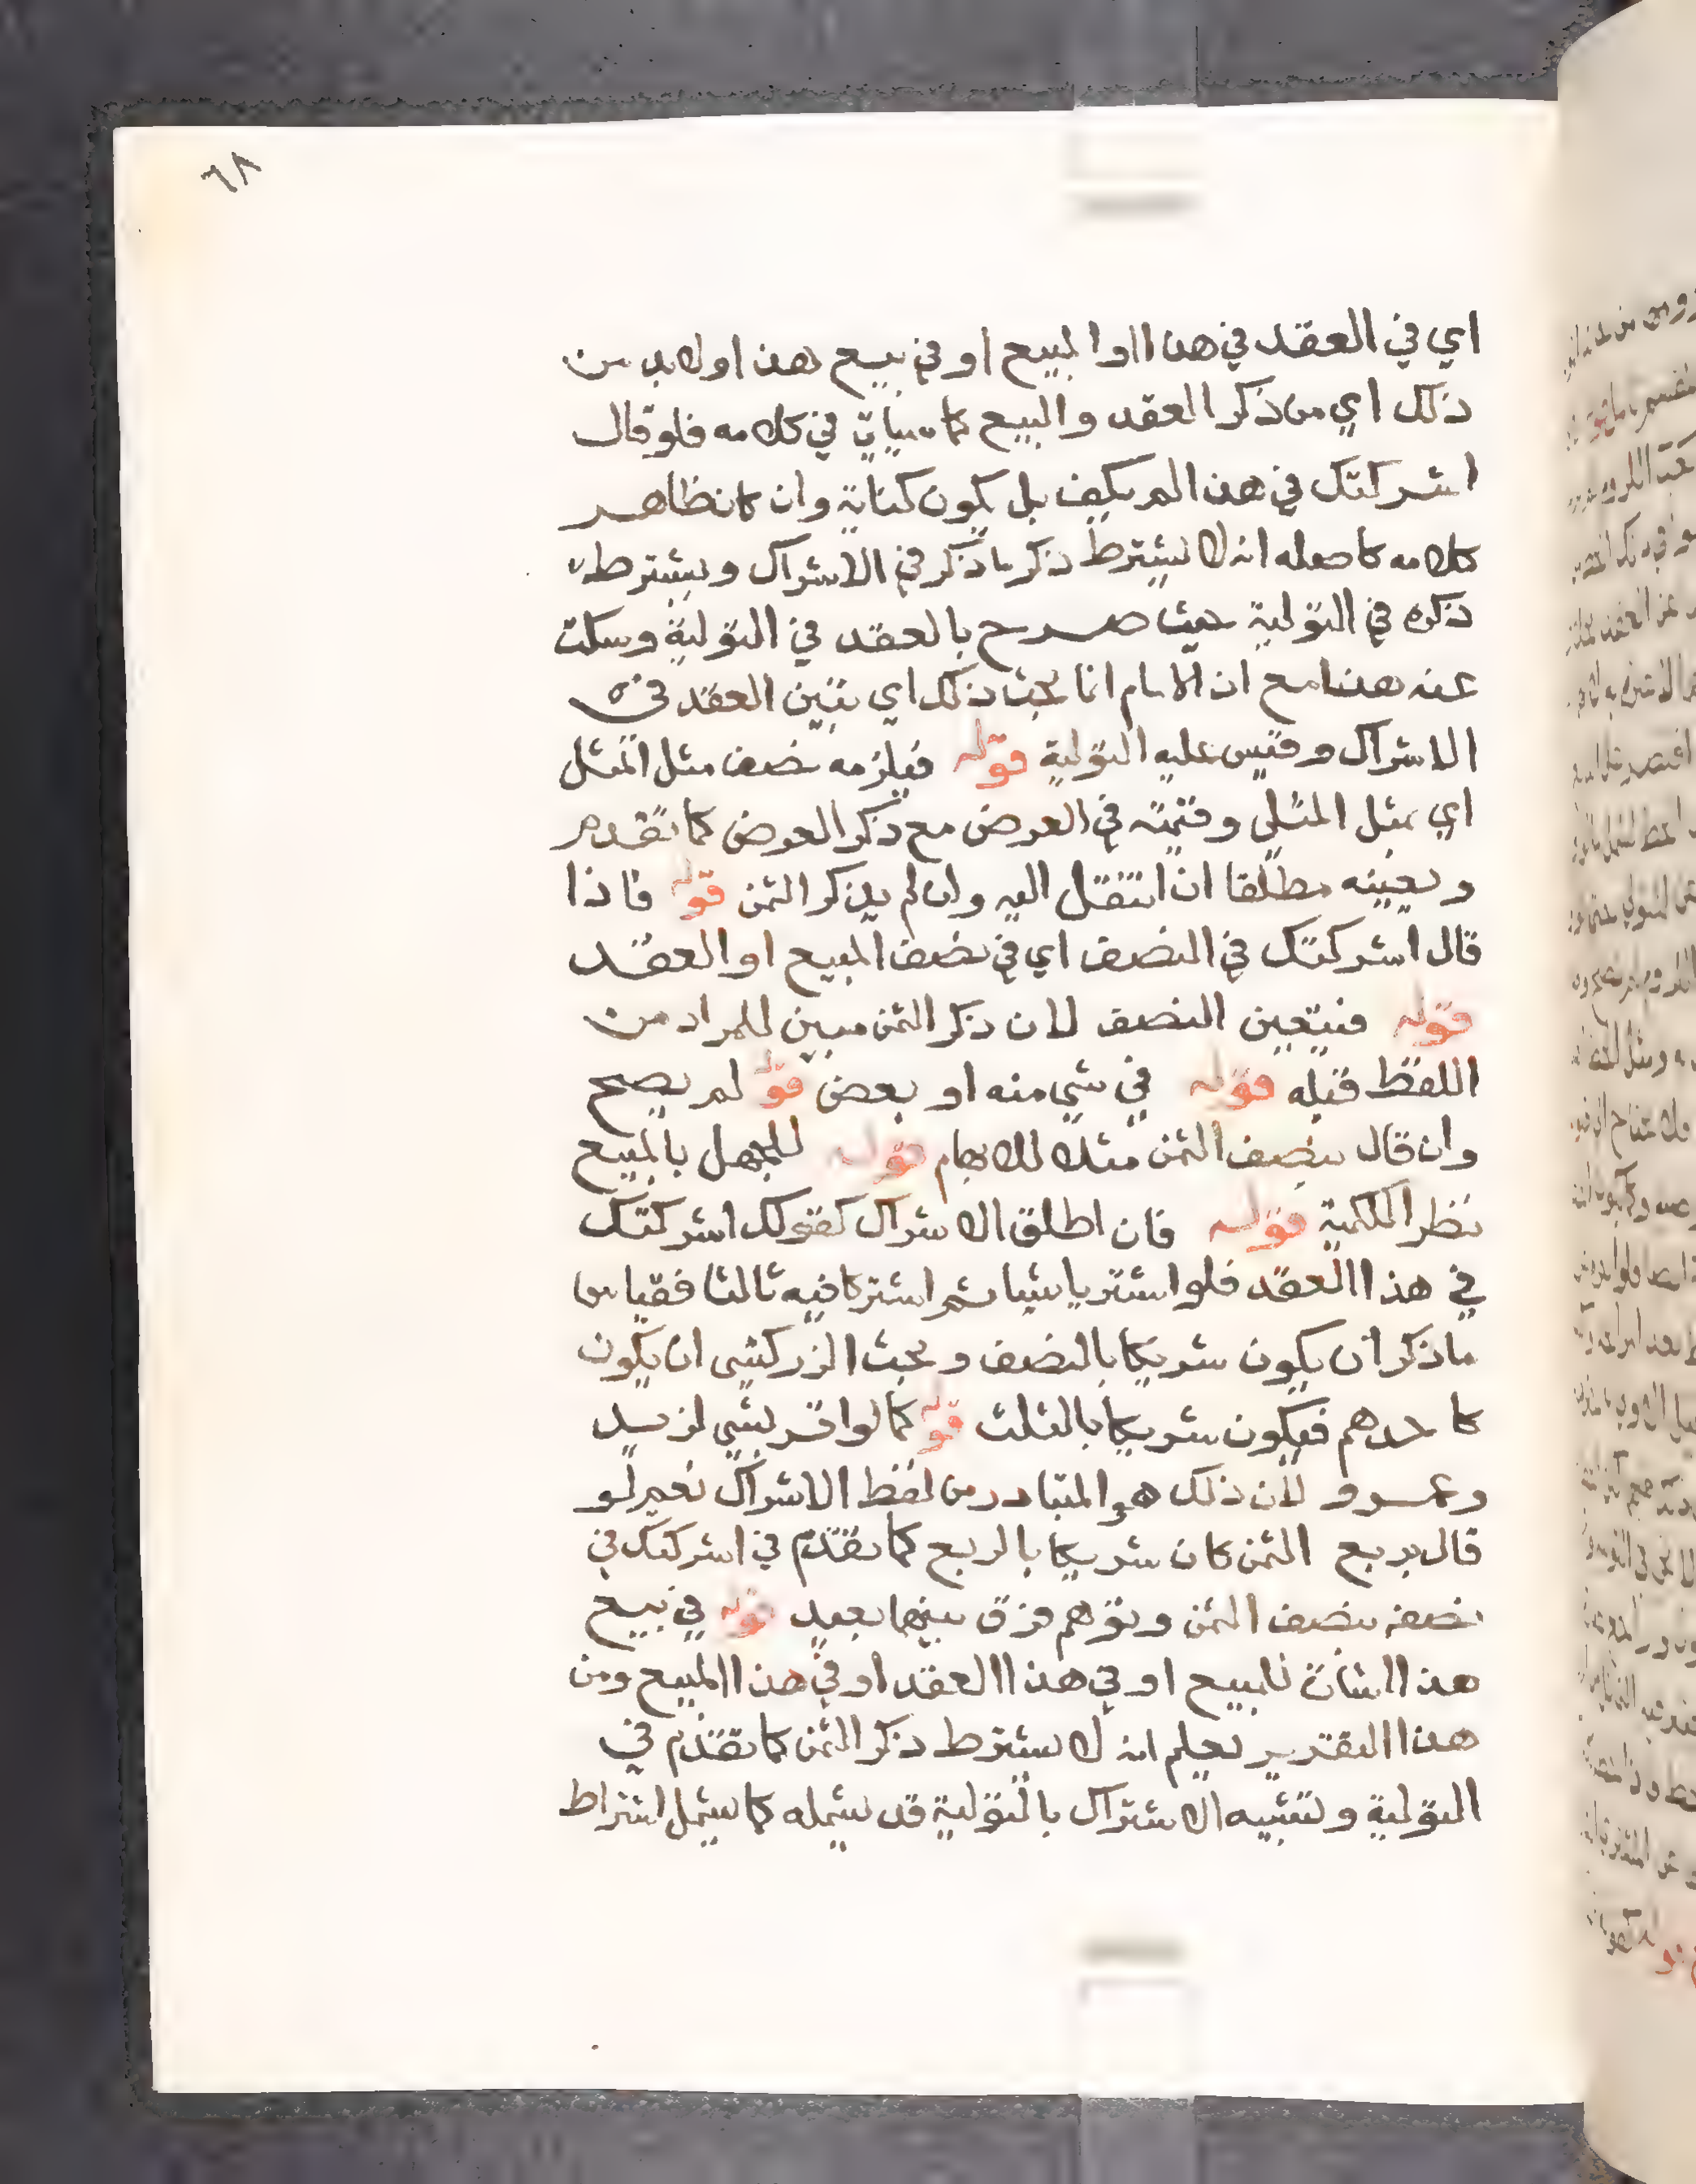 ٦٨
اي في العقد في هذا او المبيع او في بيع هذا ولابد من
ذلك اي من ذكر العقد والبيع كما سياتي في كلامه فلو قال
اشركتك في هذا لم يكف بل يكون كناية وان كان ظاهر
كلامه كاصله انه لا يشترط ذكر ما ذكر في الاشراك ويشترط
ذكره في التولية حيث صرح بالعقد في التولية وسكت
عنه هنا مع ان الامام انما بحث ذلك اي تبين العقد في
الاشراك وقيس عليه التولية قوله فيلزمه نصف مثل المثل
اي بمثل المثلي وقيمته في العرض مع ذكر العوض كما تقدم
وبعينه مطلقا ان انتقل اليه وان لم يذكر الثمن قوله فاذا
قال اشركتك في النصف اي في نصف المبيع او العقد
قوله فيتعين النصف لان ذكر الثمن مبين للمراد من
اللفظ قبله قوله في شي منه او بعض قوله لم يصح
وان قال بنصف الثمن مثلا للابهام قوله للجهل بالمبيع
نظر الملكية قوله فان اطلق الاشراك كقولك اشركتك
في هذا العقد فلو اشتريا شيا ثم اشتركا فيه ثالثا فقياس
ما ذكر ان يكون شريكا بالنصف وبحث الزركشي ان يكون
كاحدهم فيكون شريكا بالثلث قوله كما لو اقر بشي لزيد
وعمرو لان ذلك هو المتبادر من لفظ الاشراك نعم لو
قال بربع الثمن كان شريكا بالربع كما تقدم في اشركتك في
نصفه بنصف الثمن وتوهم فرق بينهما بعيد قوله في بيع
هذا اشاة للبيع او في هذا العقد او في هذا المبيع ومن
هذا التقرير يعلم انه لا يشترط ذكر الثمن كما تقدم في
التولية وتشبيه الاشتراك بالتولية قد يشمله كما يشمل اشتراط